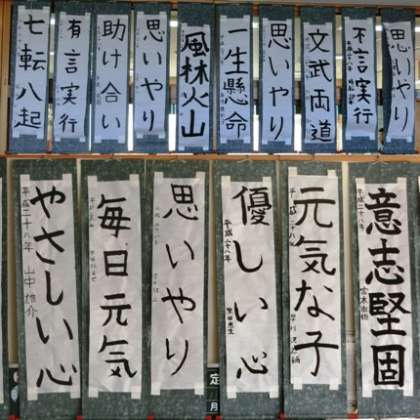 七転八起
有言実行
助け合い
思いやり
風林火山
一生懸命
思いやり
文武両道
不言実行
思いやり
やさしい心
平成二十八年
毎日元気
思いやり
優しい心
平成二十八年
元気な子
意志堅固
平成二十八年
定
月